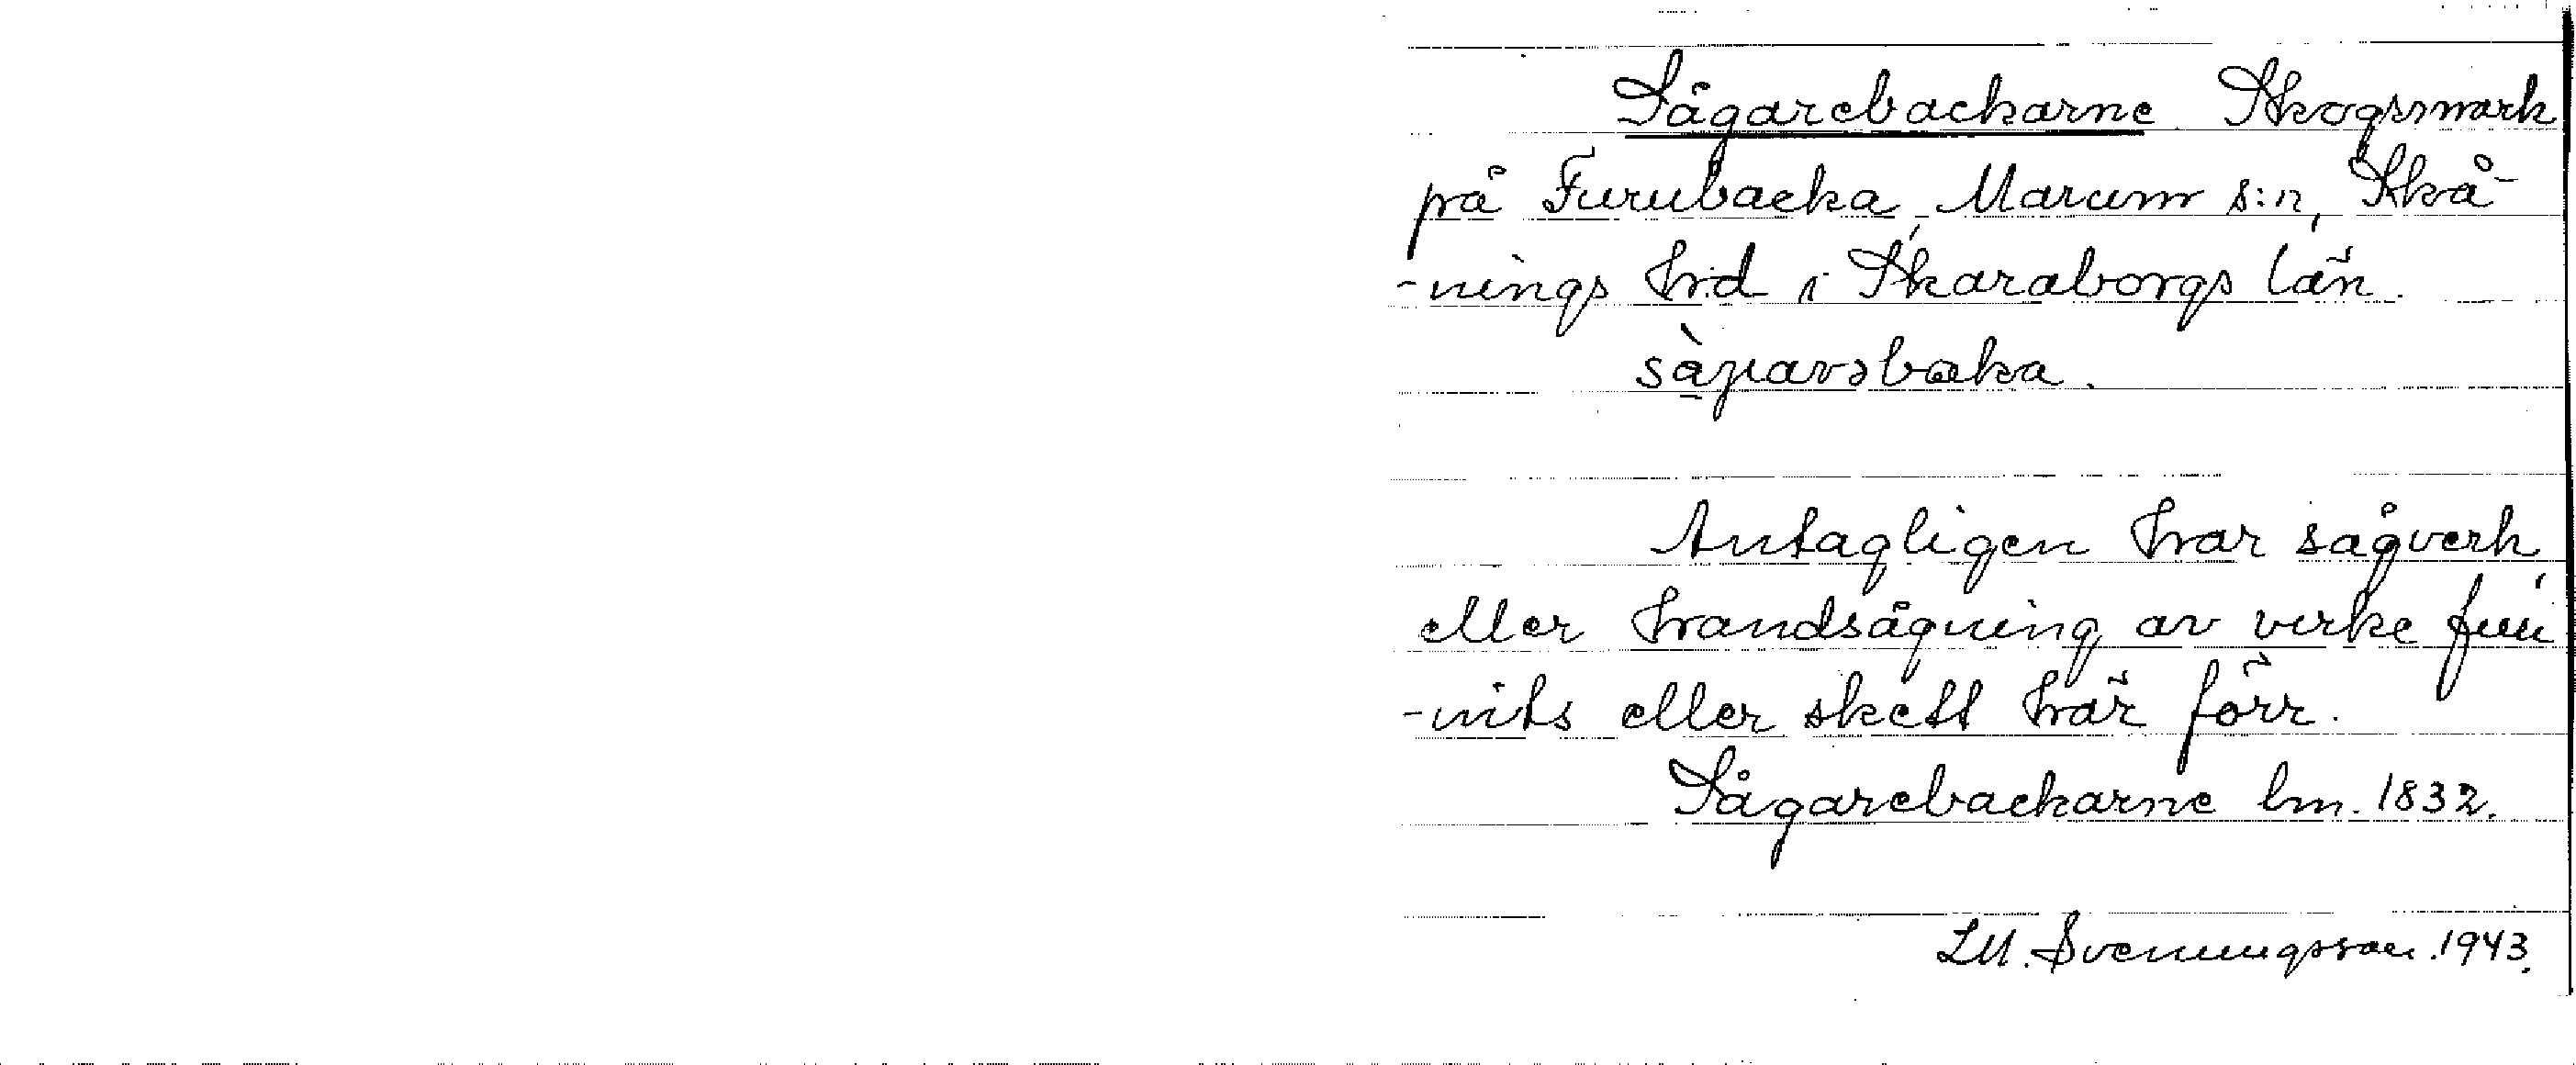 Sågarebackarne Skogsmark
på Furubacka, Marum s:n, Skå-
-nings hd i Skaraborgs län.
Antagligen har sågverk
eller handsågning av virke fun
-nits eller skett här förr.
Sågarebackarne lm. 1832.
LM. Svenungsson. 1943.